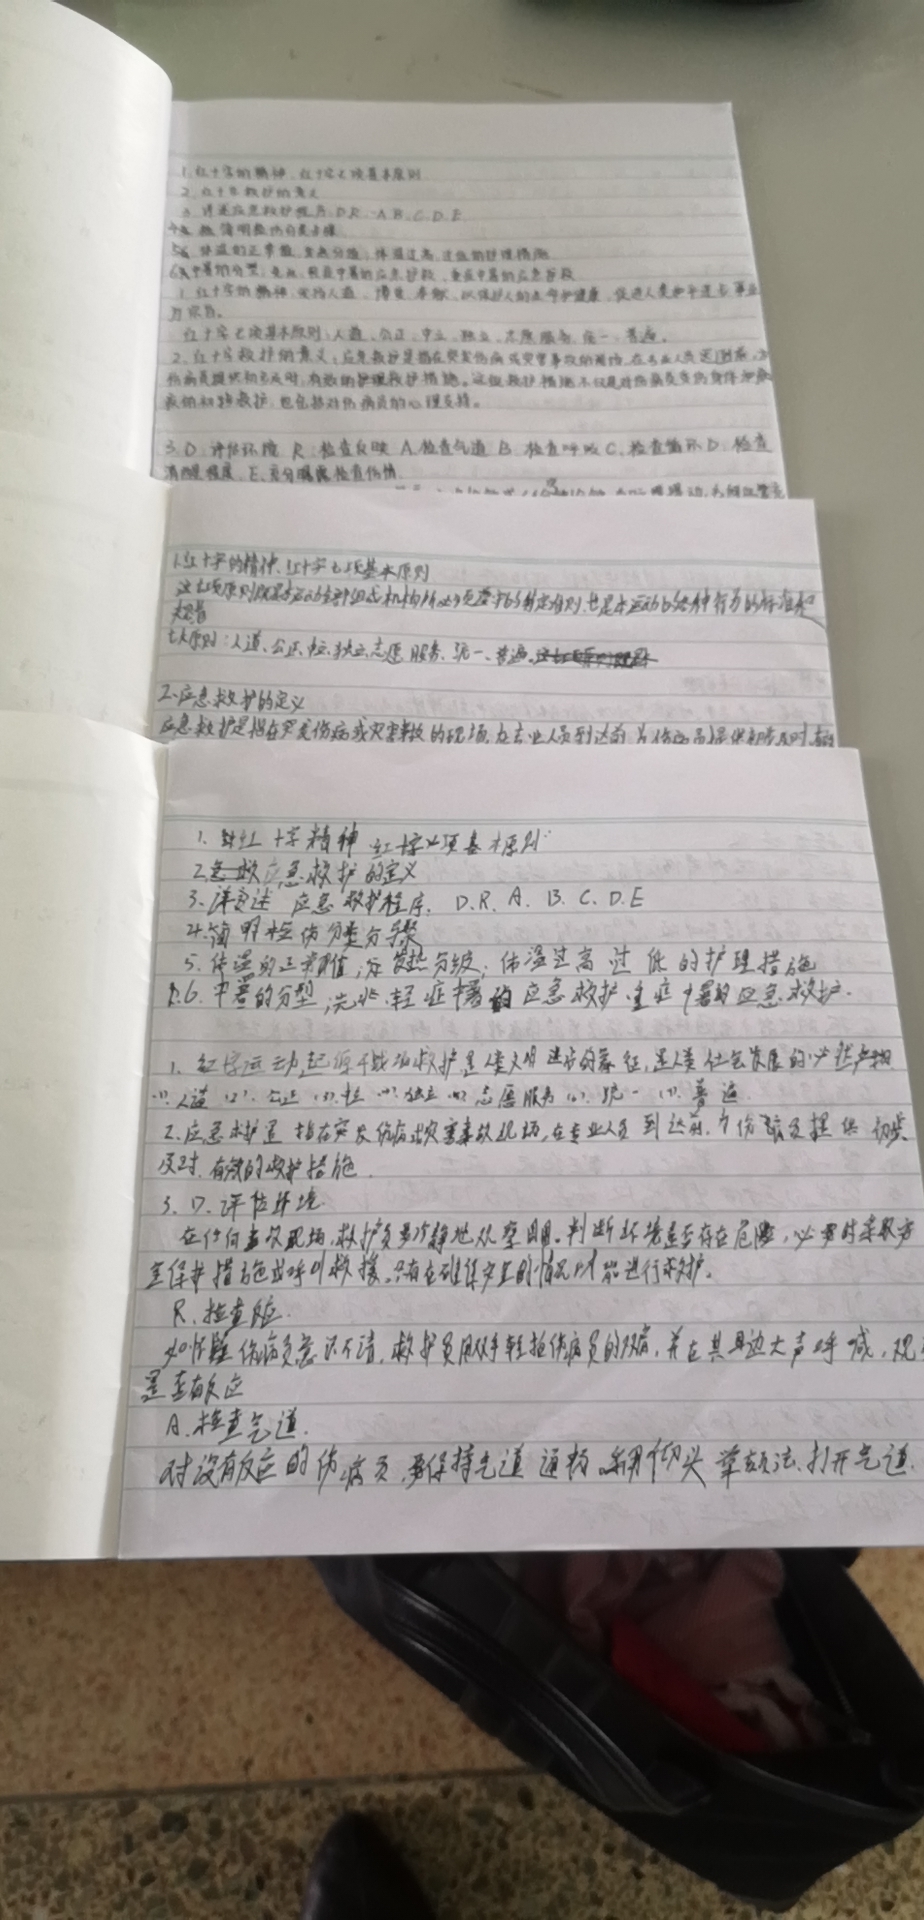 1.红十字的精神、红十字七项基本原则
2.红十字救护的意义
3.详述应急救护程序.D.R.A.B.C.D.E
4.简明检伤分类步骤
5.体温的正常值,发热分级;体温过高、过低的护理措施
6.中暑的分型;先兆、轻症中暑的应急救护、重症中暑的应急救护
1.红十字的精神:人道、博爱、奉献,以保护人的生命和健康,促进人类和平进步事业
为宗旨。
红十字七项基本原则:人道、公正、中立、独立、志愿服务、统一、普遍。
2.红十字救护的意义:应急救护是指在突发伤病或灾害事故的现场,在专业人员到达前,为
伤病员提供初步及时、有效的护理救护措施。这些救护措施不仅是对伤病员受伤身体和疾
病的初步救护,也包括对伤病员的心理支持。
3.D.评估环境 R.检查反映 A.检查气道 B.检查呼吸 C.检查循环 D.检查
清醒程度、E.充分暴露检查伤情
1.红十字的精神、红十字七项基本原则
这七项原则既是本运动各部组成机构所必须
七大原则:人道、公正、中立、独立、志愿服务、统一、普遍
2.应急救护的定义
应急救护是指在突发伤病或灾害事故的现场,在专业人员到达前,为伤病员提供初步及时、有效
1.红十字精神 红十字七项基本原则
2.应急救护的定义
3.详述 应急救护程序. D.R.A.B.C.D.E
4.简明检伤分类步骤
5.体温的正常值,发热分级;体温过高过低的护理措施
6.中暑的分型;先兆、轻症中暑的应急救护.重症中暑的应急救护.
1.红十字运动起源于战场救护,是人类文明进步的象征,是人类社会发展的必然产物
(1).人道 (2).公正 (3).中立 (4).独立 (5)志愿服务(6).统一 (7).普遍
2.应急救护是指在突发伤病或灾害事故现场,在专业人员到达前,为伤病员提供初步
及时.有效的救护措施.
3.D.评估环境.
在任何事故现场,救护员要冷静地观察周围。判断环境是否存在危险,必要时采取安
全保护措施或呼叫救援。只有在确保安全的情况下才能进行救护。
R.检查反应.
如怀疑伤病员意识不清,救护员用双手轻拍伤病员的双肩,并在其耳边大声呼喊,观
是否有反应
A.检查气道.
对没有反应的伤病员,要保持气道通畅.采用仰头举颏法.打开气道.